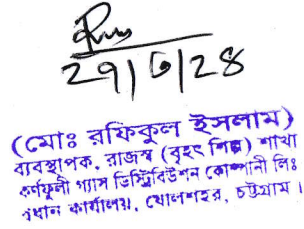 ২৭/৩/২৪
(মোঃ রফিকুল ইসলাম)
ব্যবস্থাপক, রাজস্ব (বৃহৎ শিল্প) শাখা
কর্ণফুলী গ্যাস ডিস্ট্রিবিউশন কোম্পানী লিঃ
প্রধান কার্যালয়, ষোলশহর, চট্টগ্রাম।